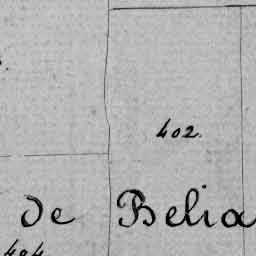 402.
de Belia
404